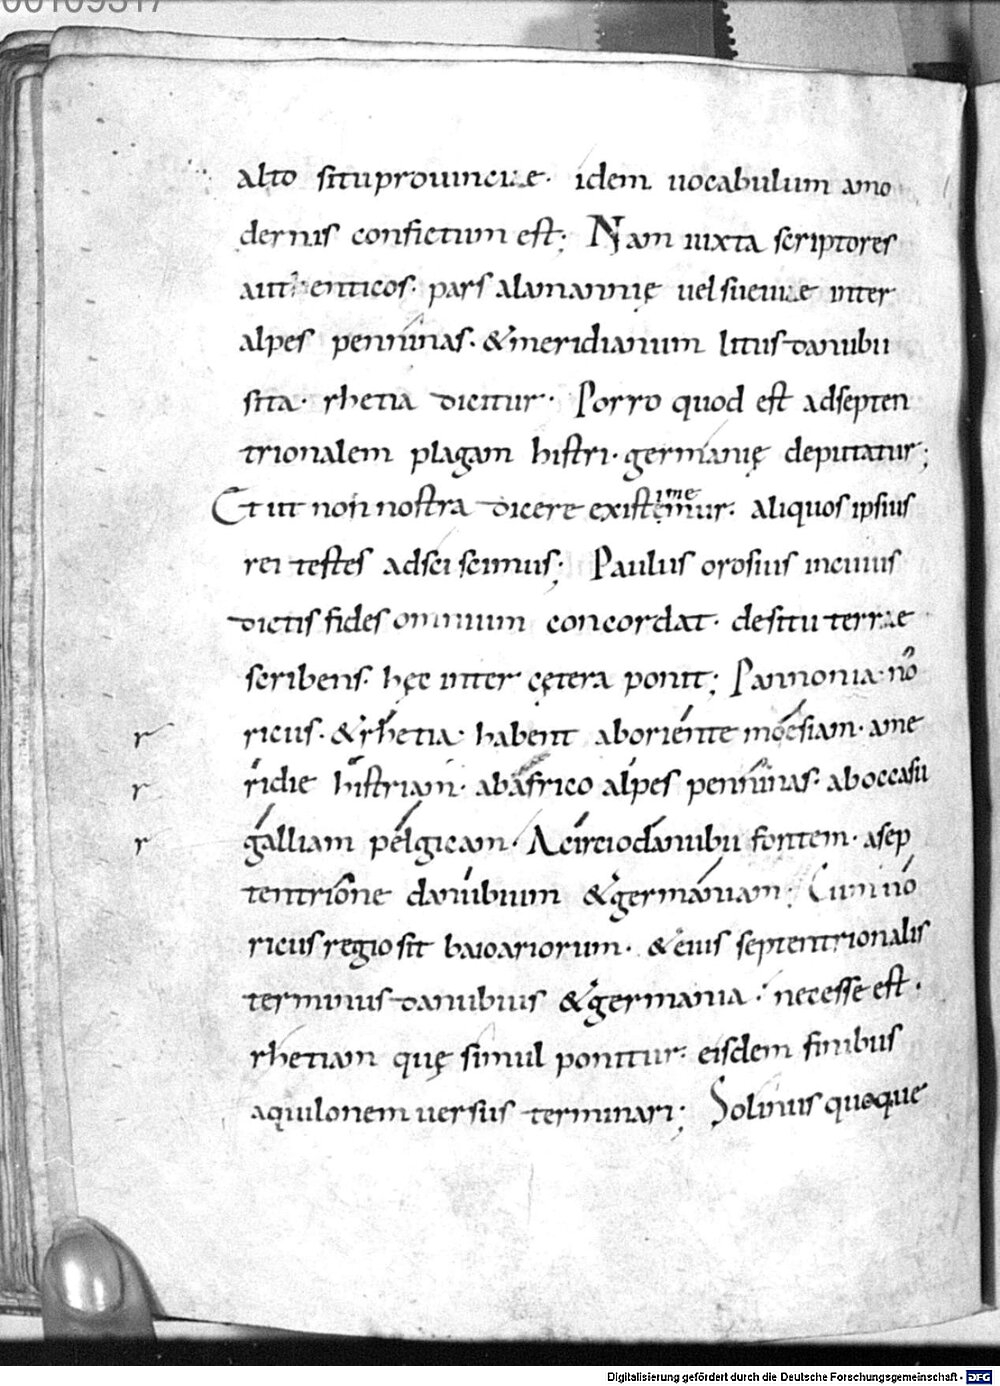 00109317
alto situprouinciae· idem uocabulum amo
dernis confictum est; Nam iuxta scriptores
authenticos· pars alamannię uel sueuiae inter
alpes penninas· & meridianum litus danubii
sita· rhetia dicitur· Porro quod est adsepten
trionalem plagam histri· germanię deputatur;
Et ut non nostra dicere existemur· aliquos ipsius
ime
rei testes adsciscimus; Paulus orosius incuius
dictis fides omnium concordat· desitu terrae
scribens· hęc inter cętera ponit; Pannonia· nó
ricus· & rhetia· habent aboriente moesiam· ame
r
ridie histriam· abafrico alpes penninas· aboccasu
r
galliam pelgicam· Acirciodanubii fontem· asep
r
tentrione danubium & germaniam; Cum nó
ricus regio sit baioariorum· & eius septentrionalis
terminus danubius & germania· necesse est·
rhetiam quę simul ponitur· eisdem finibus
aquilonem uersus terminari; Solinus quoque
Digitalisierung gefördert durch die Deutsche Forschungsgemeinschaft · DFG